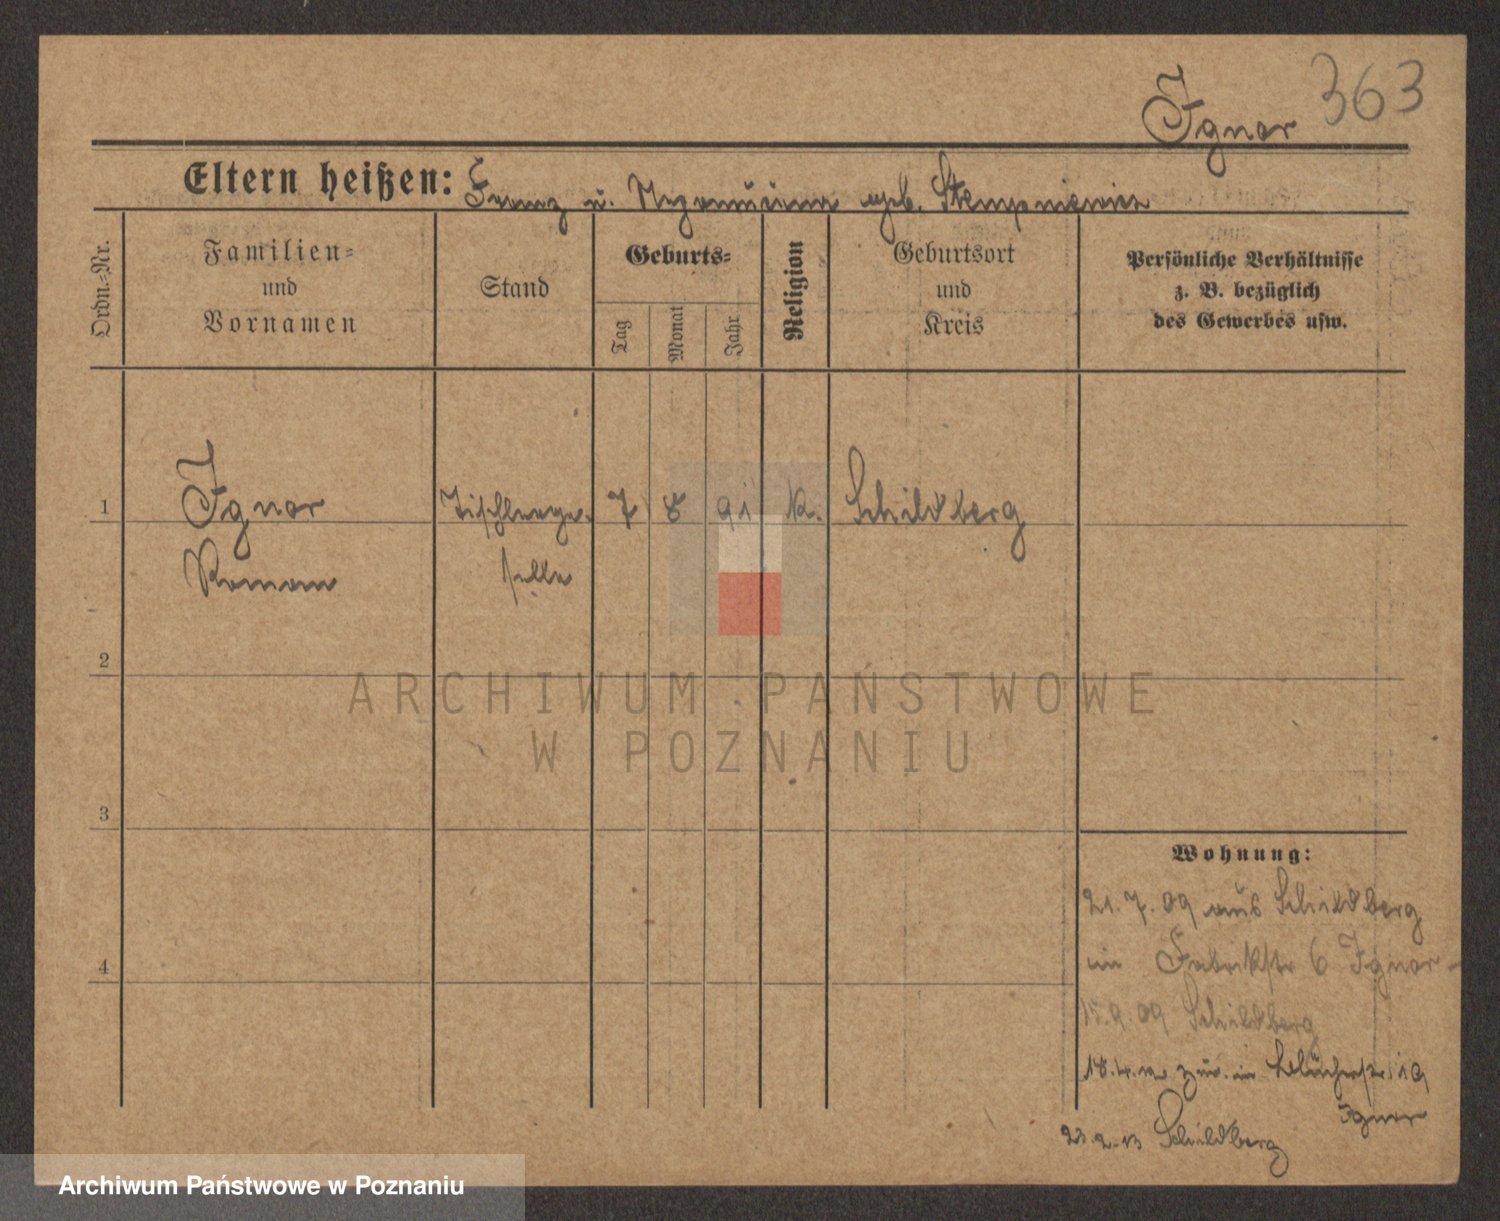 363
Ignor
Eltern heißen: Franz u. geb. Stempniewicz
Ordn.-Nr.
Familien-
und
Vornamen
Stand
Geburts-
Tag
Monat
Jahr
Religion
Geburtsort
und
Kreis
Persönliche Verhältnisse
z. B. bezüglich
des Gewerbes usw.
1 Ignor Tischlerge- 7 8 91 K. Schildberg
Roman selle
2
3
4
Wohnung:
21.7.09 aus Schildberg
in Fabrikstr 6 Ignor
15.9.09 Schildberg
zur. in Blücherstr 19
Ignor
23.2.13 Schildberg
ARCHIWUM PAŃSTWOWE
W POZNANIU
Archiwum Państwowe w Poznaniu